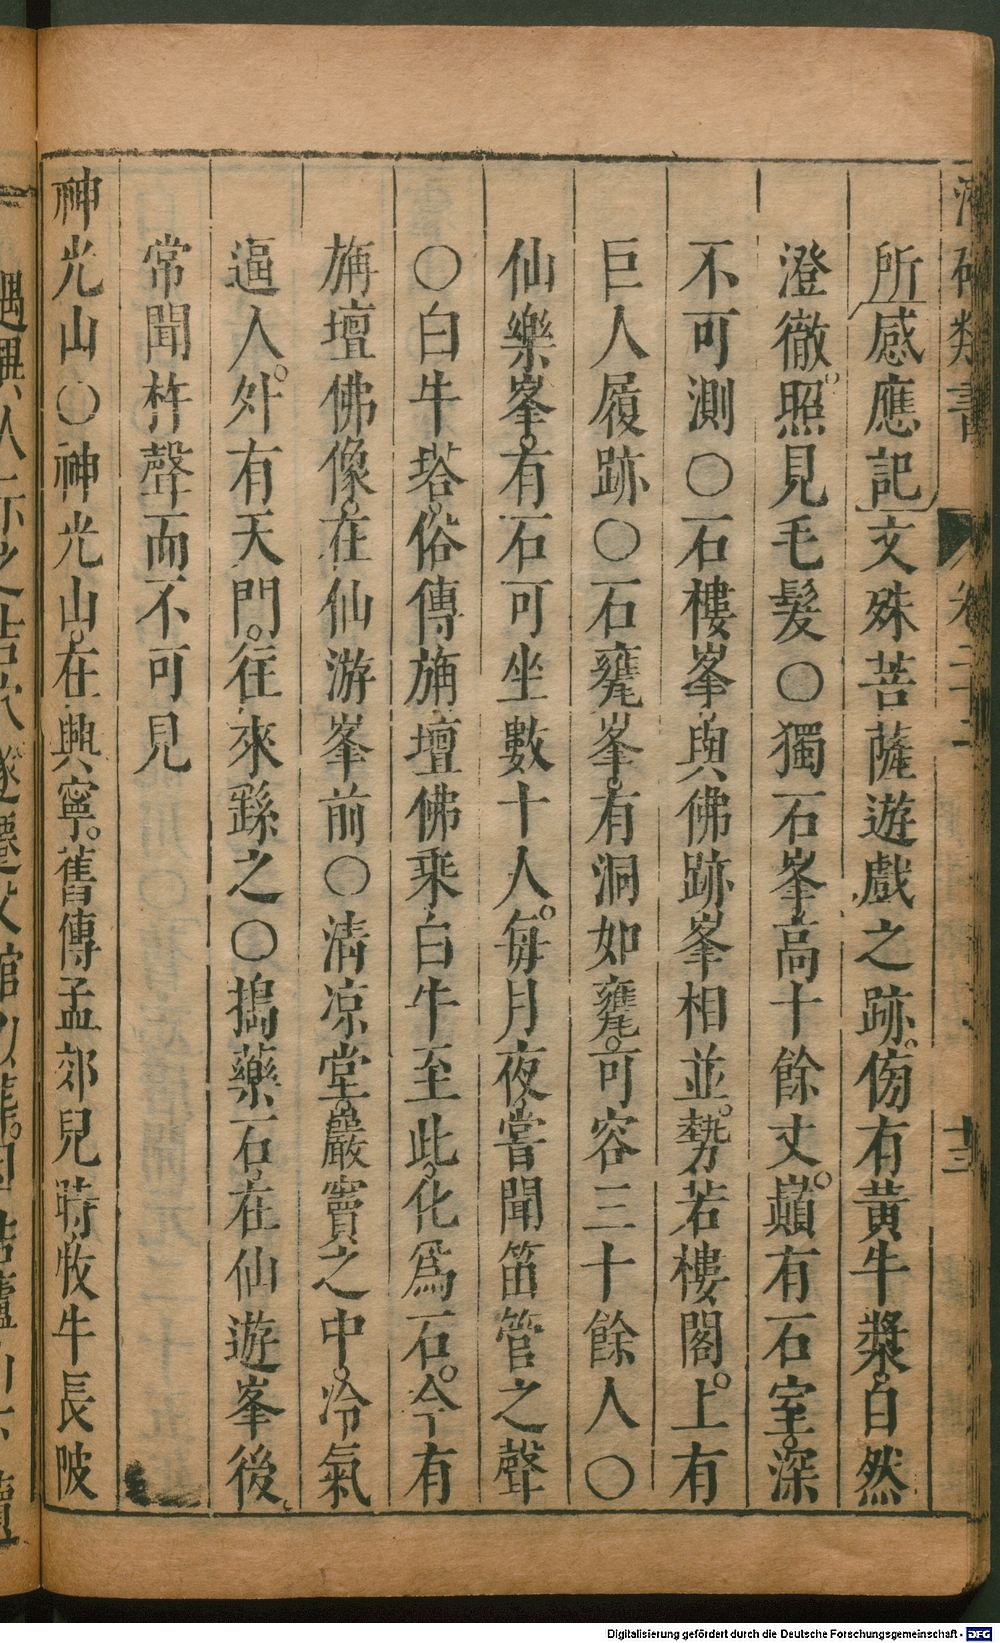 類書 卷之二 十三
所感應記文殊菩薩遊戲之跡。傍有黃牛漿。白然
澄徹。照見毛髮○獨石峯。高十餘丈。巔有石室。深
不可測○石樓峯。與佛跡峯相並。勢若樓閣。上有
巨人履跡○石甕峯。有洞如甕。可容三十餘人○
仙樂峯。有石可坐數十人。每月夜。嘗聞笛管之聲
○白牛塔。俗傳旃壇佛乘白牛至此。化爲石。今有
旃壇佛像。在仙游峯前○清凉堂。巖竇之中。冷氣
逼人。外有天門。往來繇之○搗藥石。在仙遊峯後。
常聞杵聲而不可見
神光山○神光山。在興寧。舊傳孟郊兒時。牧牛長陂
Digitalisierung gefördert durch die Deutsche Forschungsgemeinschaft - DFG